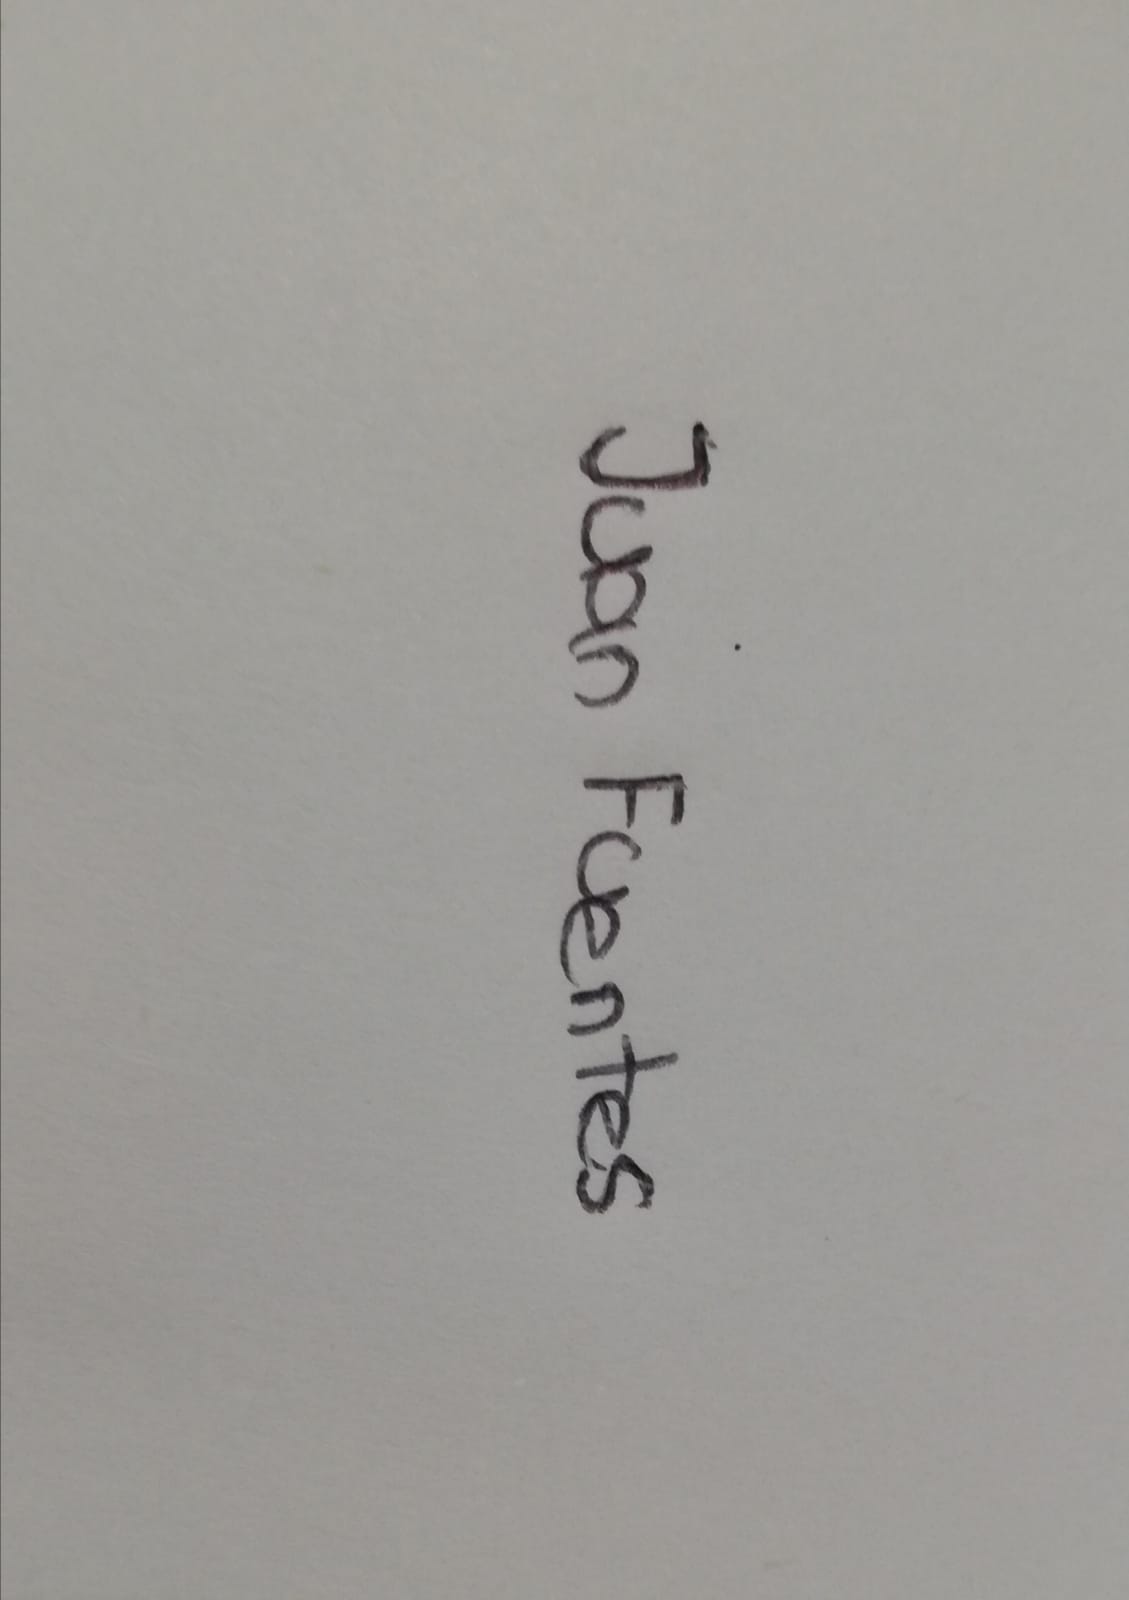 Juan Fuentes